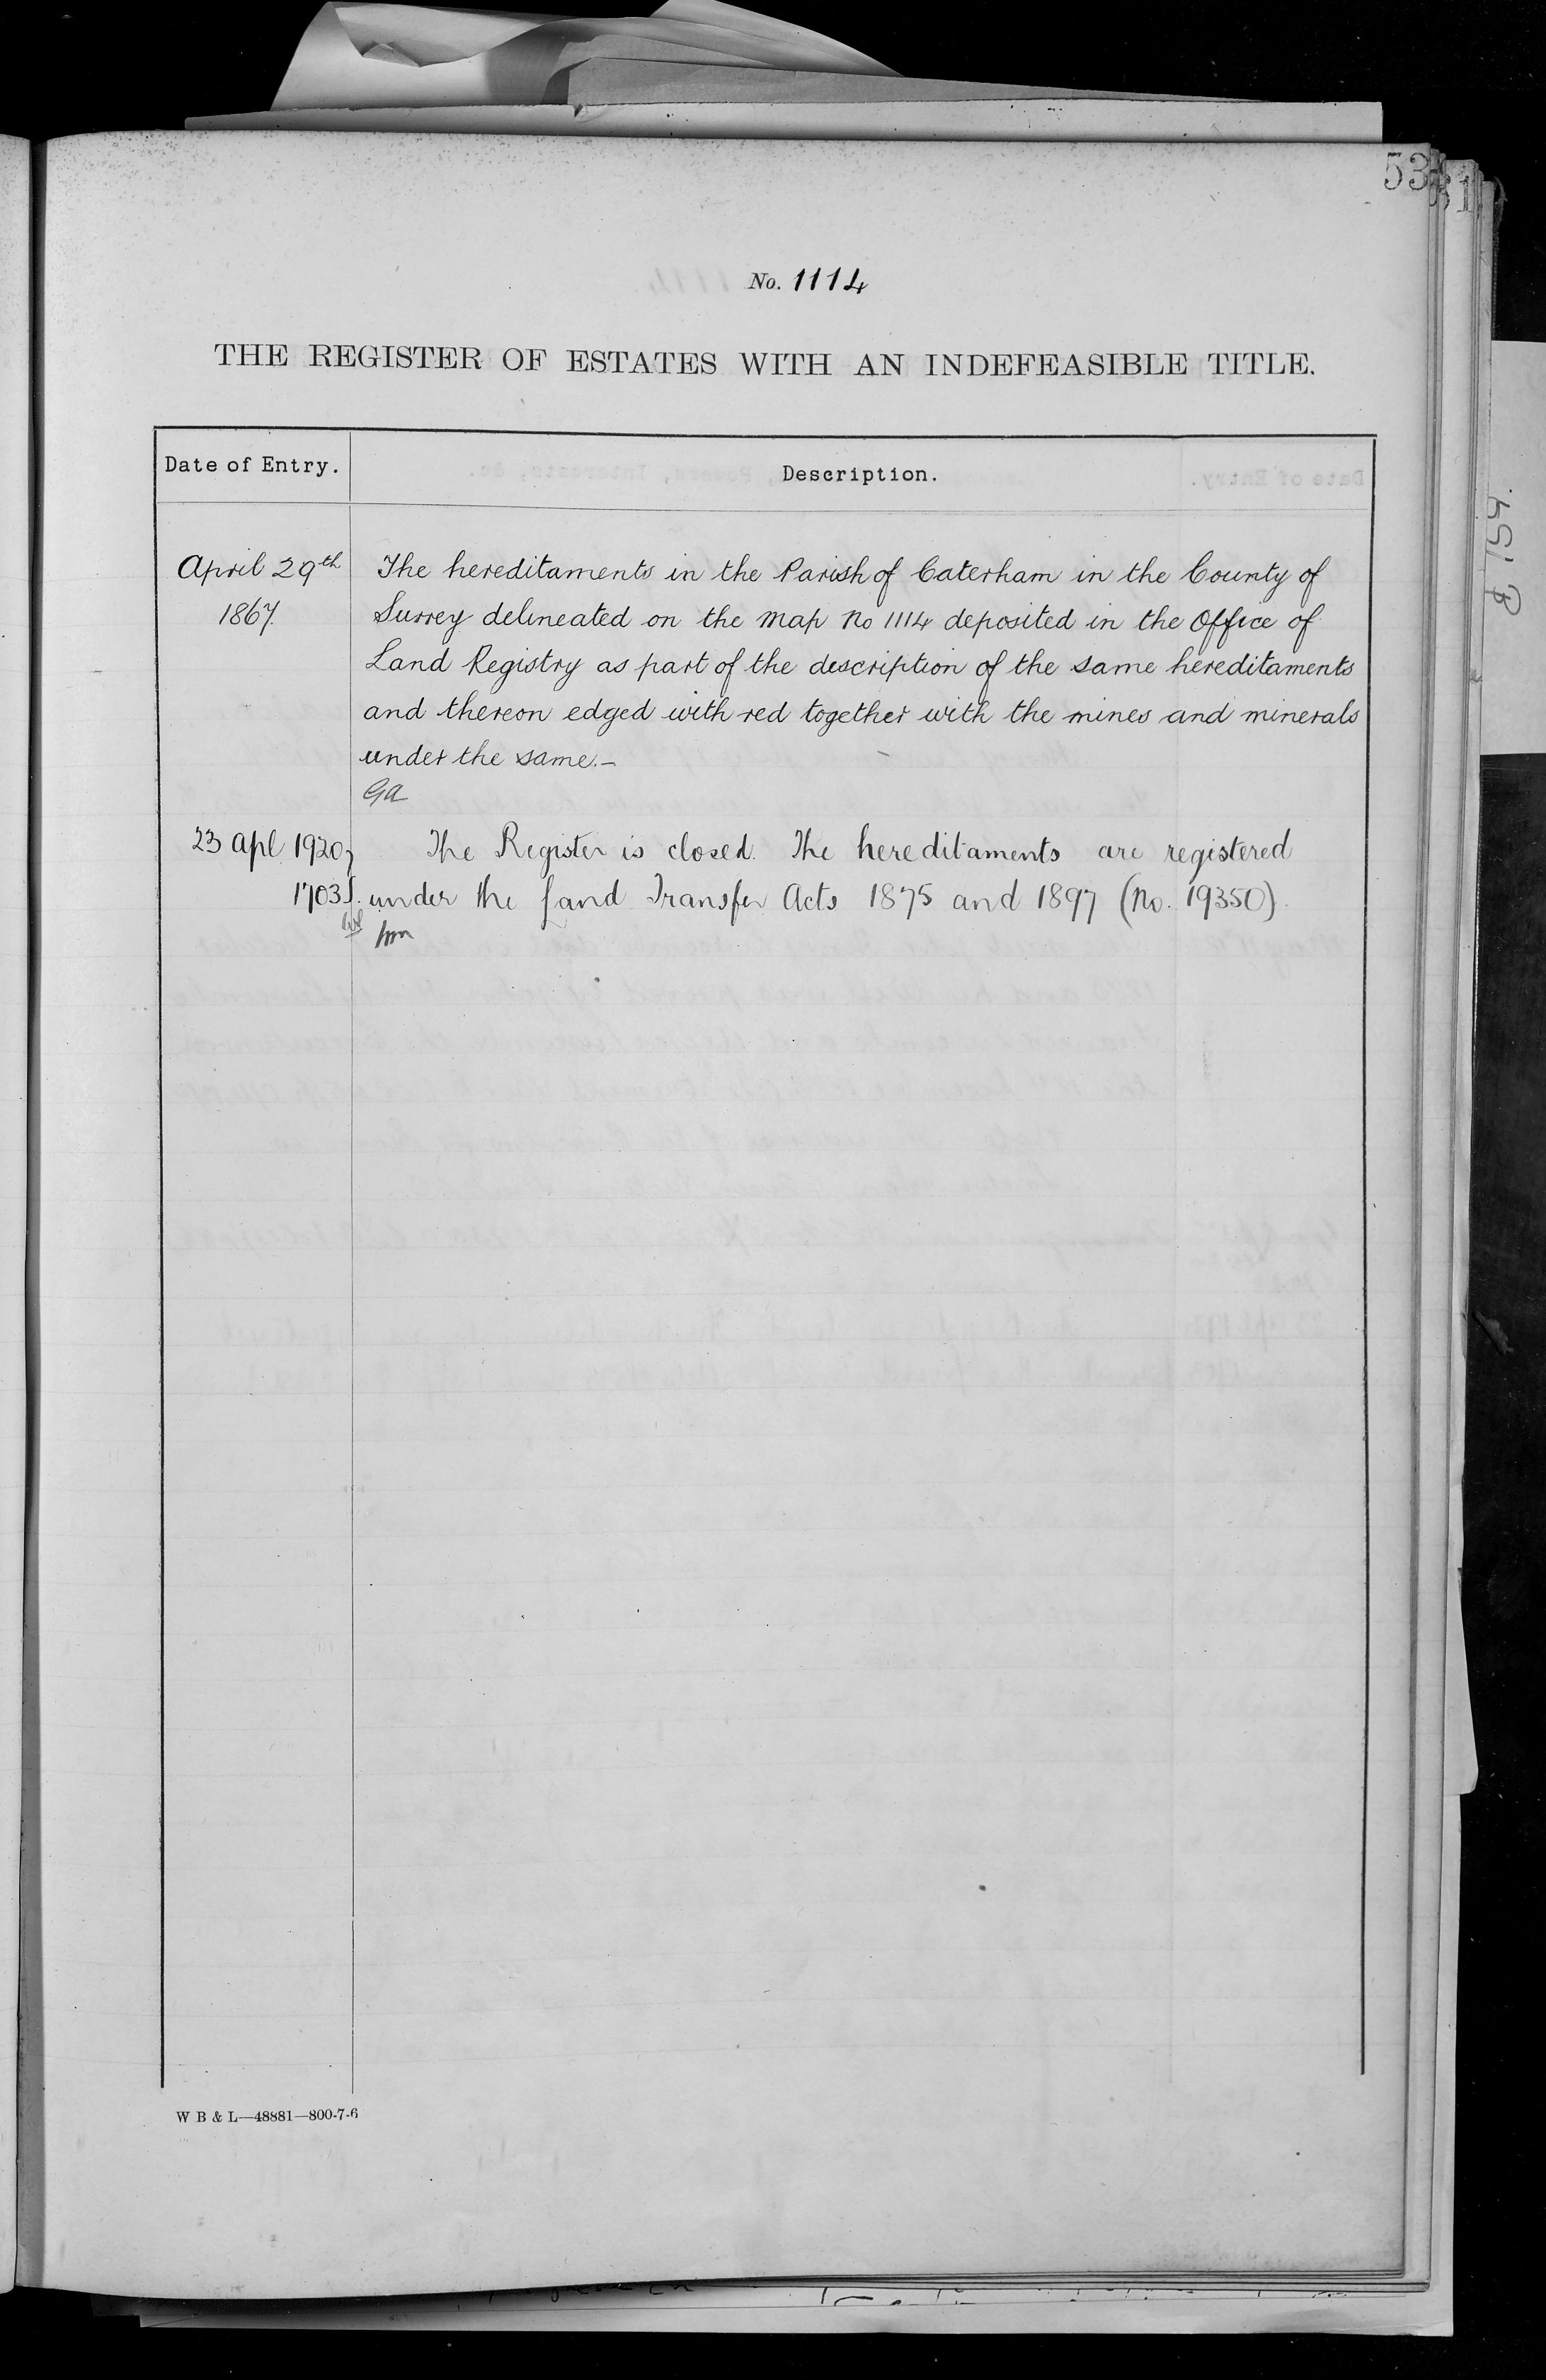 53
No. 1114
THE REGISTER OF ESTATES WITH AN INDEFEASIBLE TITLE.
Date of Entry.
Description.
April 29th
1867.
The hereditaments in the Parish of Caterham in the County of
Surrey delineated on the Map No 1114 deposited in the Office of
Land Registry as part of the description of the same hereditaments
and thereon edged with red together with the mines and minerals
under the same.—
GA
23 Apl 1920
1703
The Register is closed. The hereditaments are registered
under the Land Transfer Acts 1875 and 1897 (No. 19350).
W B & L—48881—800-7-6